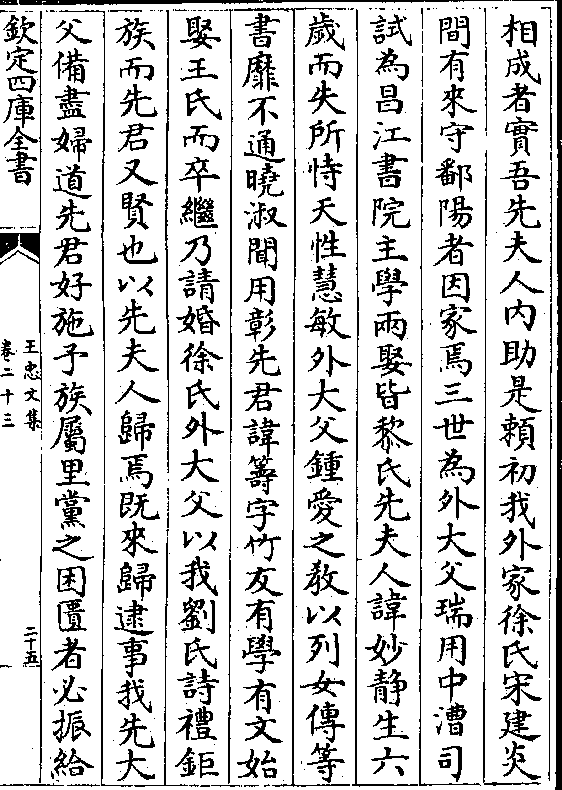 相成者實吾先夫人内助是賴初我外家徐氏宋建炎
間有來守鄱陽者因家焉三世為外大父瑞用中漕司
試為昌江書院主學兩娶皆黎氏先夫人諱妙静生六
歲而失所恃天性慧敏外大父鍾愛之教以列女傳等
書靡不通曉淑聞用彰先君諱籌字竹友有學有文始
娶王氏而卒繼乃請婚徐氏外大父以我劉氏詩禮鉅
族而先君又賢也以先夫人歸焉既來歸逮事我先大
父備盡婦道先君好施予族屬里黨之困匱者必振給
欽定四庫全書
王忠文集
卷二十三
二十五